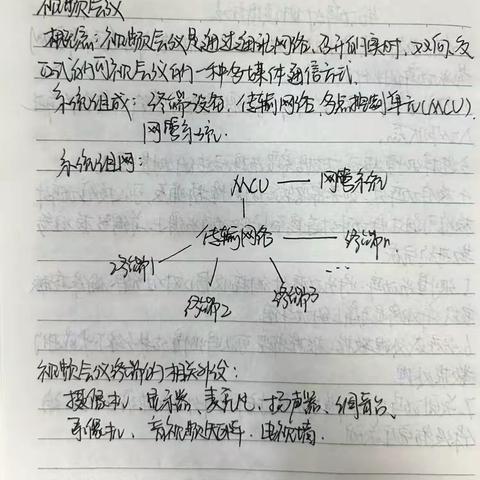 视频会议
概念:视频会议是通过通讯网络,召开的实时、双向、交
互式的可视会议的一种多媒体通信方式.
系统组成:终端设备,传输网络,多点控制单元(MCU).
网管系统.
系统组网:
MCU — 网管系统
传输网络 — 终端n.
终端1
...
终端2 终端3
视频会议终端的相关外设:
摄像机、显示器、麦克风、扬声器、调音台、
录像机、音视频矩阵、电视墙.